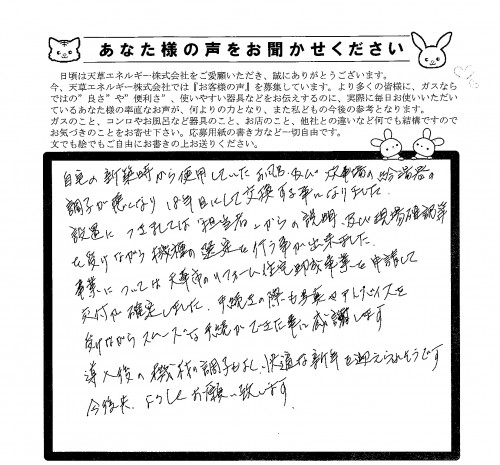 あなた様の声をお聞かせください
日頃は天草エネルギー株式会社をご愛顧いただき、誠にありがとうございます。
今、天草エネルギー株式会社では『お客様の声』を募集しています。より多くの皆様に、ガスなら
ではの”良さ”や”便利さ”、使いやすい器具などをお伝えするのに、実際に毎日お使いいただい
ているあなた様の率直なお声が、何よりの力となり、また私どもの今後の参考となります。
ガスのこと、コンロやお風呂など器具のこと、お店のこと、他社との違いなど何でも結構ですので
お気づきのことをお寄せ下さい。応募用紙の書き方など一切自由です。
文でも絵でもご自由にお書きの上お送りください。
自宅の新築時から使用していたお風呂及び炊事場の給湯器の
調子が悪くなり18年目にして交換する事になりました。
設置につきましては"担当者"からの説明、及び現場確認等
を受けながら機種の選定を行う事が出来ました。
事業については天草市のリフォーム住宅助成事業を申請して
交付が確定しました。手続きの際も多くのアドバイスを
受けながらスムーズな手続ができた事に感謝します
導入後の機械の調子もよし、快適な新年を迎えられそうです
今後共、よろしくお願い致します。